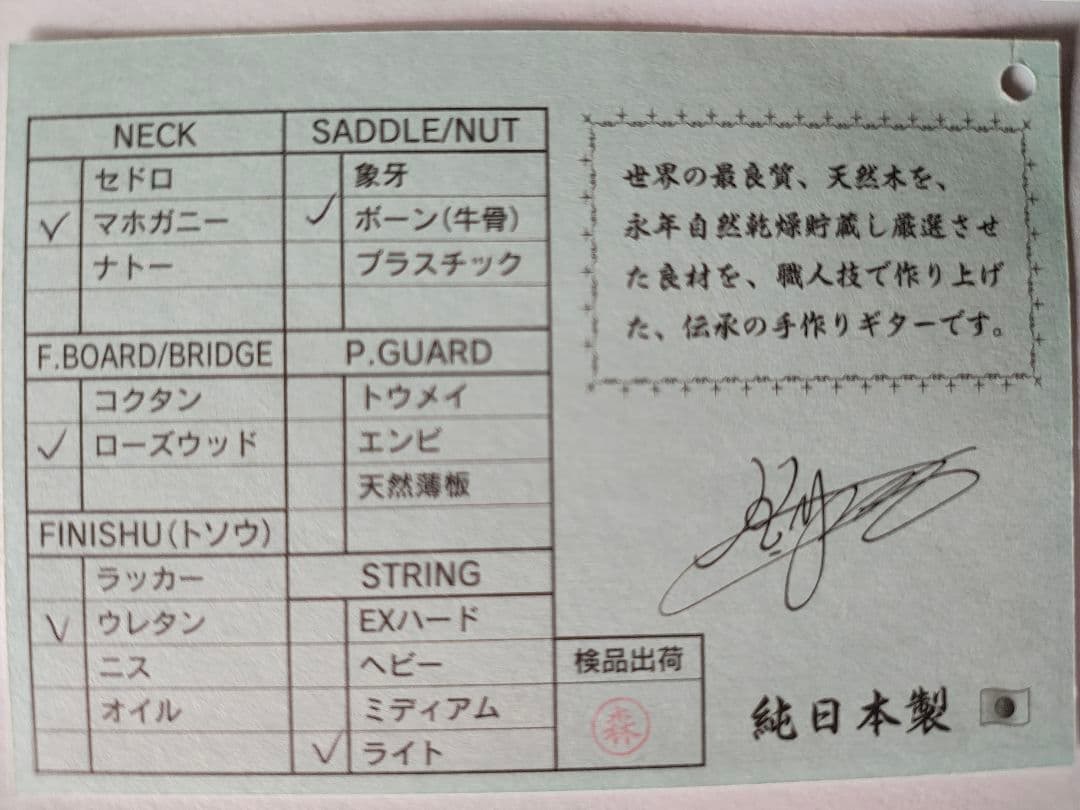 NECK
セドロ
✓ マホガニー
ナトー
F.BOARD/BRIDGE
コクタン
✓ ローズウッド
FINISHU(トソウ)
ラッカー
✓ ウレタン
ニス
オイル
SADDLE/NUT
象牙
✓ ボーン(牛骨)
プラスチック
P.GUARD
トウメイ
エンビ
天然薄板
STRING
EXハード
ヘビー
ミディアム
✓ ライト
世界の最良質、天然木を、
永年自然乾燥貯蔵し厳選させ
た良材を、職人技で作り上げ
た、伝承の手作りギターです。
検品出荷
森
純日本製